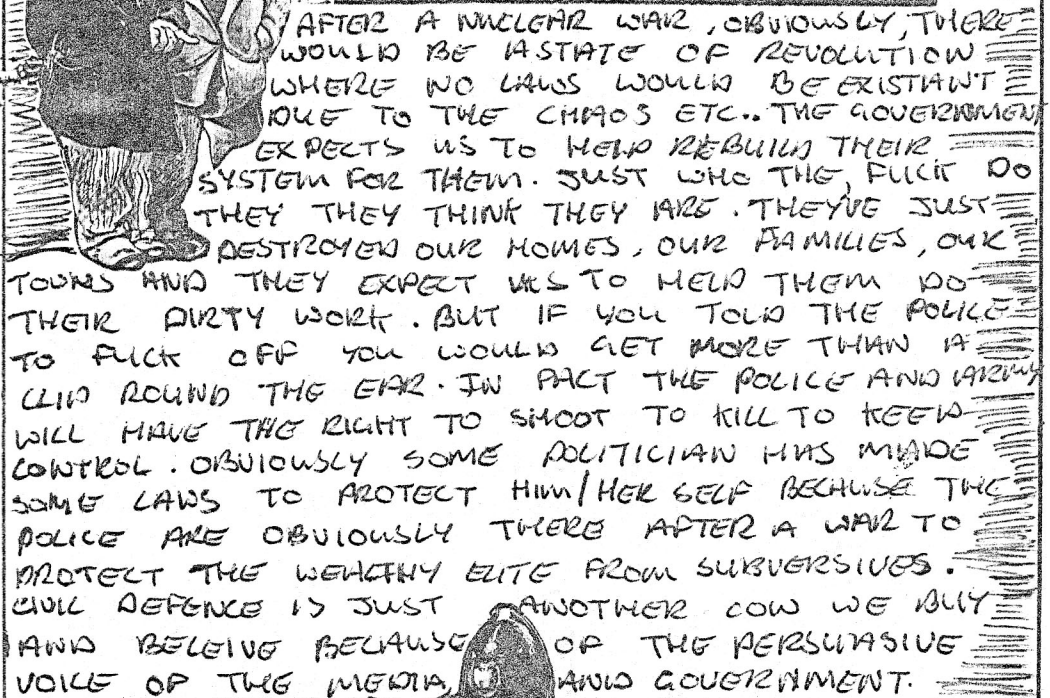 AFTER A NUCLEAR WAR, OBVIOUSLY, THERE
WOULD BE A STATE OF REVOLUTION
WHERE NO LAWS WOULD BE EXISTIANT
DUE TO THE CHAOS ETC.. THE GOVERNMENT
EXPECTS US TO HELP REBUILD THEIR
SYSTEM FOR THEM. JUST WHO THE, FUCK DO
THEY THEY THINK THEY ARE. THEYVE JUST
DESTROYED OUR HOMES, OUR FAMILIES, OUR
TOWNS AND THEY EXPECT US TO HELP THEM DO
THEIR DIRTY WORK. BUT IF YOU TOLD THE POLICE
TO FUCK OFF YOU WOULD GET MORE THAN A
CLIP ROUND THE EAR. IN FACT THE POLICE AND ARMY
WILL HAVE THE RIGHT TO SHOOT TO KILL TO KEEP
CONTROL. OBVIOUSLY SOME POLITICIAN HAS MADE
SOME LAWS TO PROTECT HIM/HER SELF BECAUSE THE
POLICE ARE OBVIOUSLY THERE AFTER A WAR TO
PROTECT THE WEALTHY ELITE FROM SUBVERSIVES.
CIVIL DEFENCE IS JUST ANOTHER CON WE BUY
AND BELEIVE BECAUSE OF THE PERSUASIVE
VOICE OF THE MEDIA, AND GOVERNMENT.